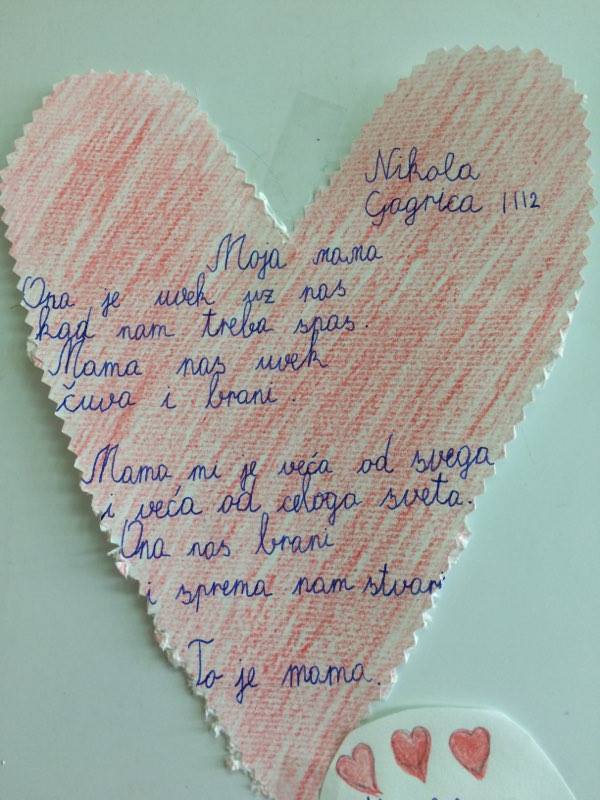 Nikola
Gagrica III2
Moja mama
Ona je uvek uz nas
kad nam treba spas.
Mama nas uvek
čuva i brani.
Mama mi je veća od svega
i veća od celoga sveta.
Ona nas brani
i sprema nam stvari
To je mama.